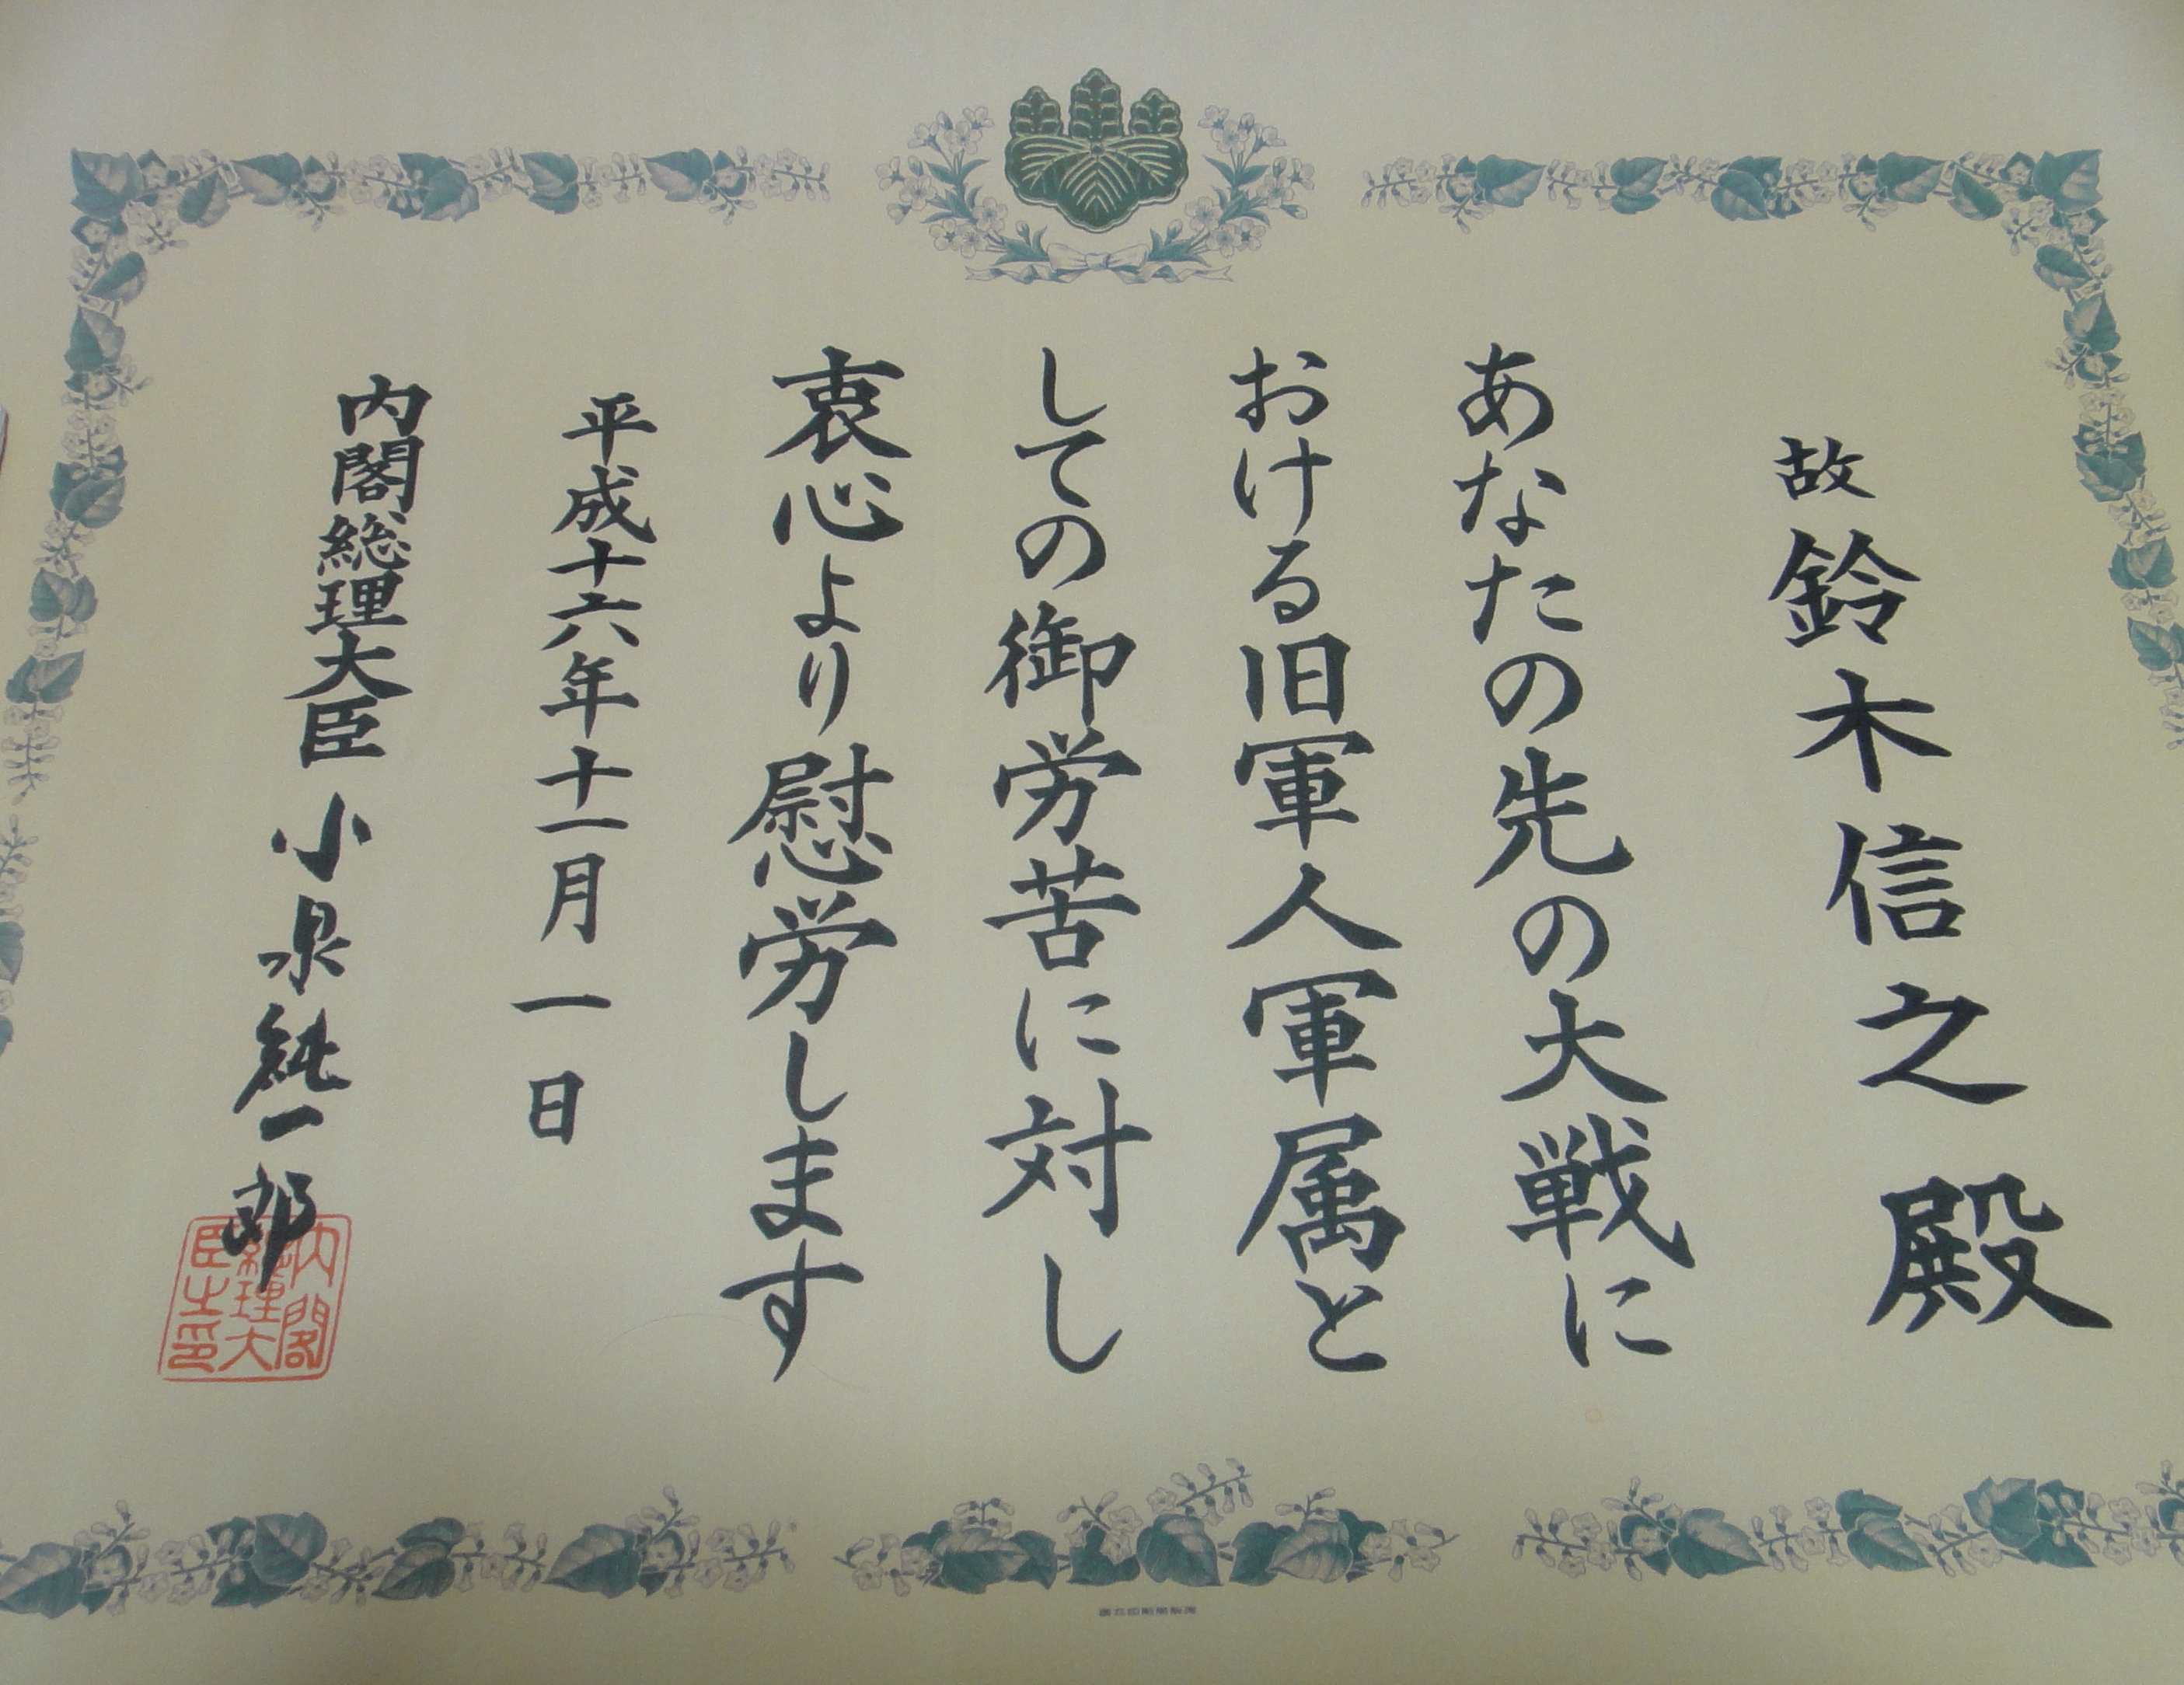 故 鈴木信之 殿
あなたの先の大戦に
おける旧軍人軍属と
しての御労苦に対し
衷心より慰労します
平成十六年十一月一日
内閣総理大臣 小泉純一郎
内閣
総理大
臣之印
国立印刷局製造